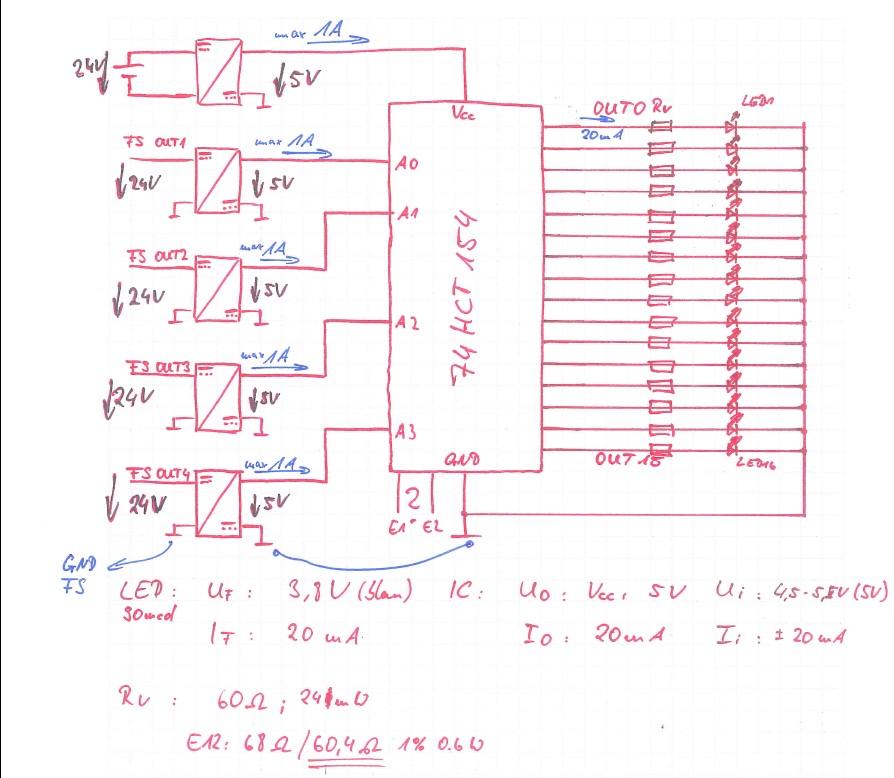 max 1A
24V
5V
Vcc
OUT0 Rv
LED1
20mA
FS OUT1
max 1A
24V
5V
A0
A1
FS OUT2
max 1A
24V
5V
74HCT154
A2
FS OUT3
max 1A
24V
5V
A3
FS OUT4
max 1A
24V
5V
GND
OUT15
LED16
2
E1 E2
GND
FS
LED: UF: 3,8V (blau) IC: UO: Vcc, 5V Ui: 4,5-5,5V (5V)
90mcd
IF: 20 mA IO: 20mA Ii: ± 20 mA
Rv: 60Ω; 24mW
E12: 68Ω/60,4Ω 1% 0.6W